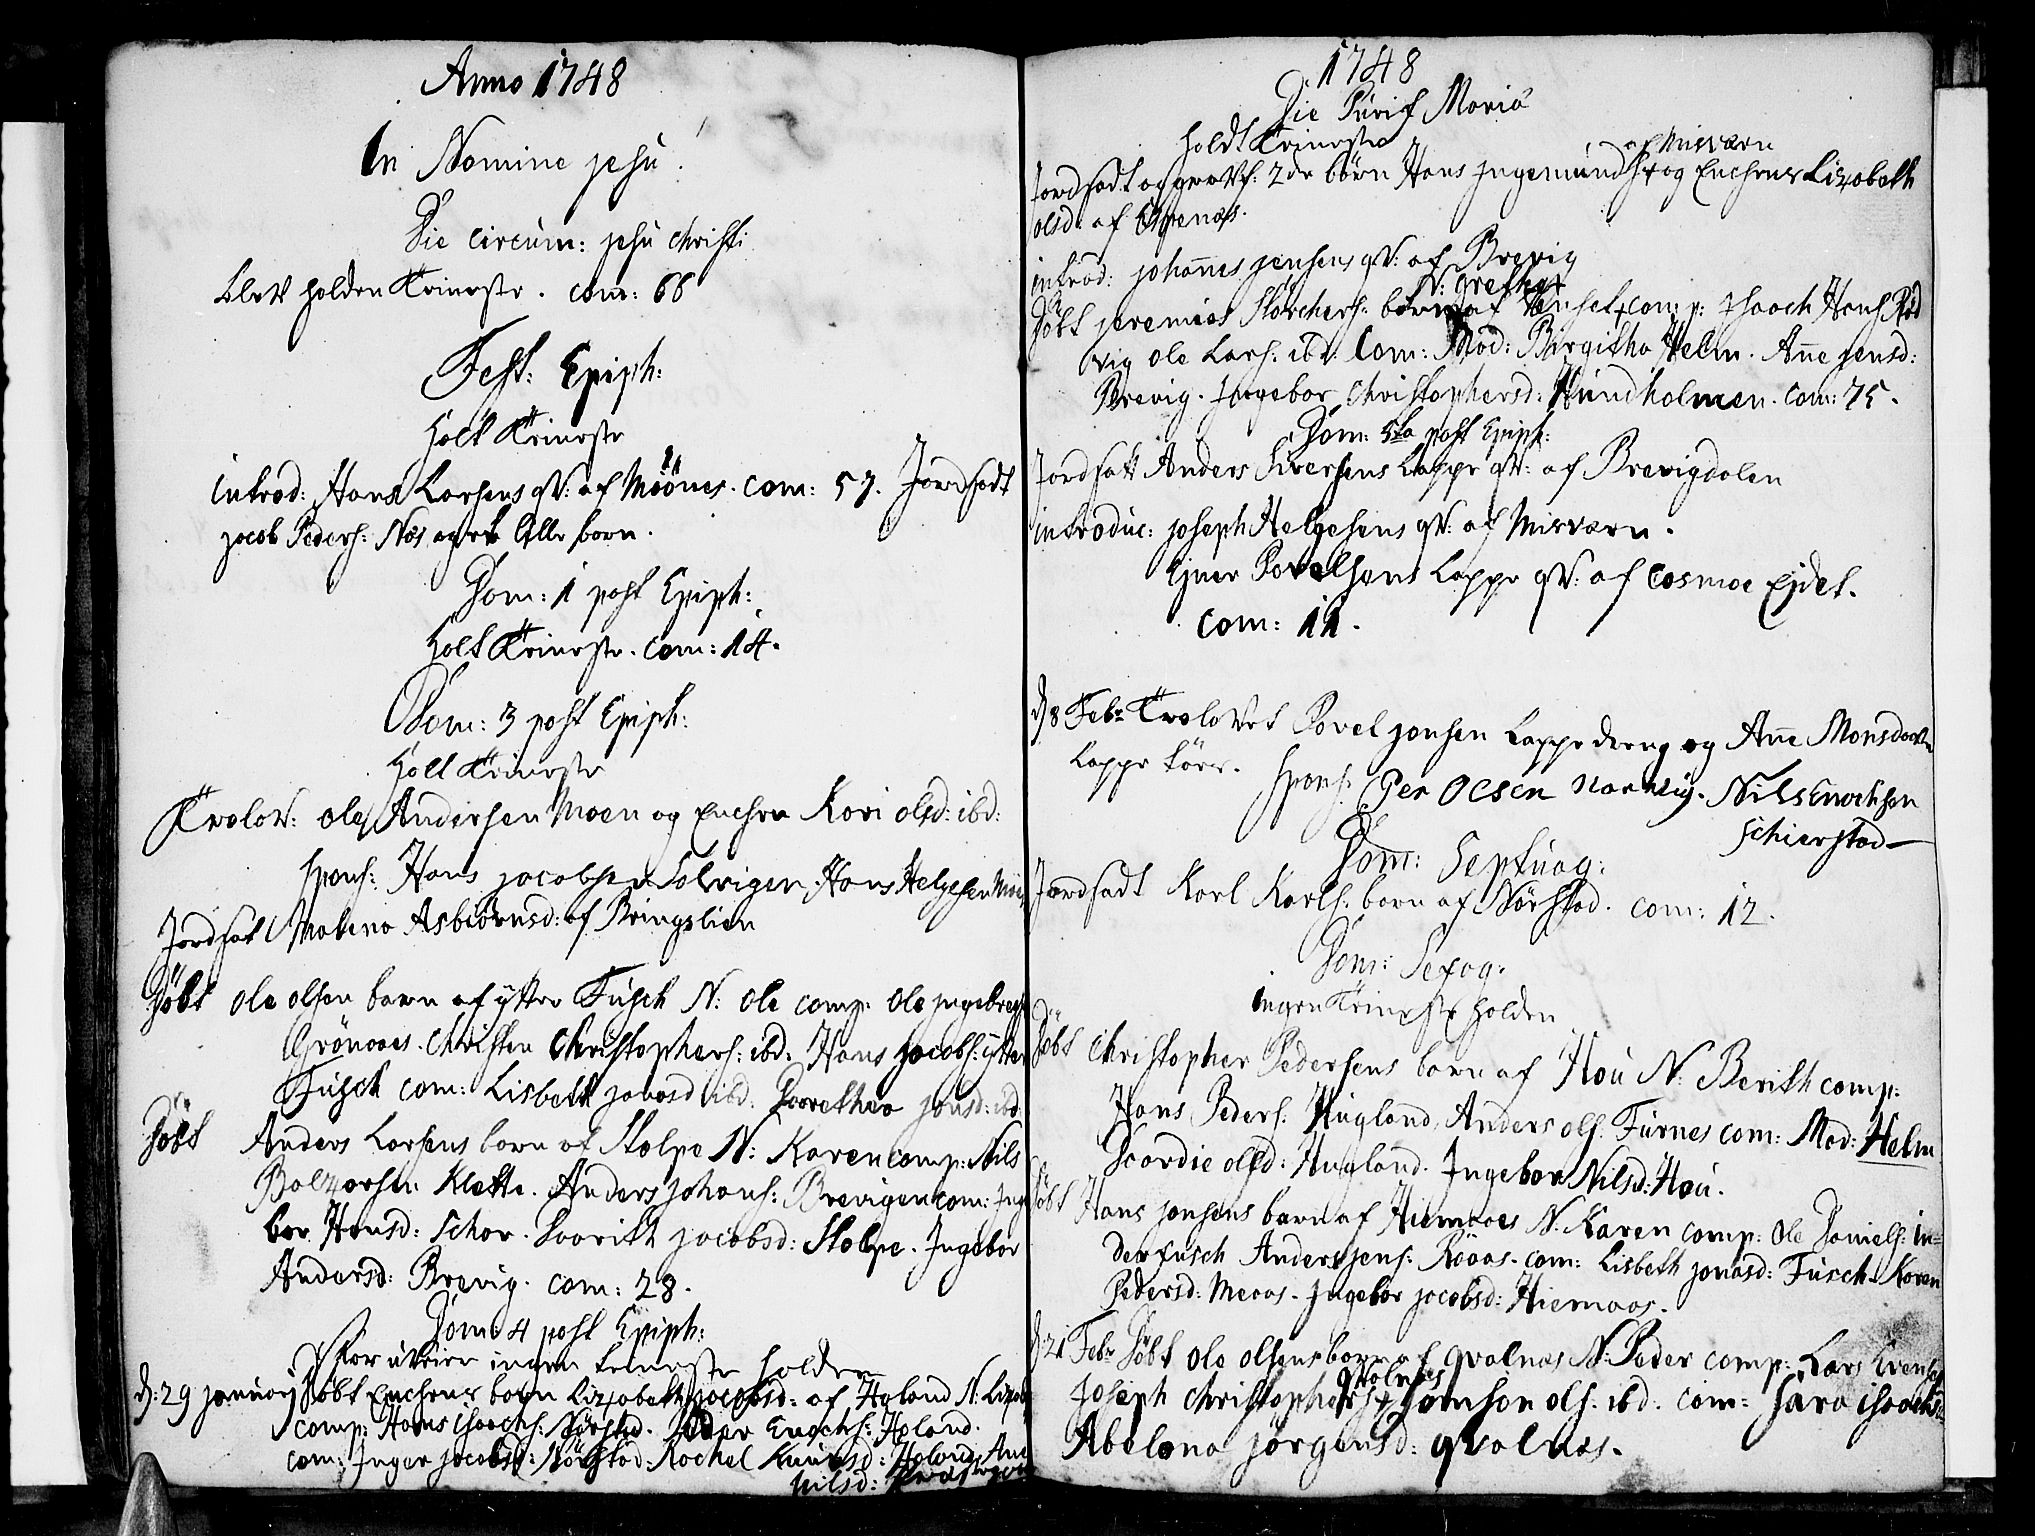 Anno 1748
In Nomine Jesu!
Die Circum: Jesu Christi
blev holden Tieniste. com: 66
Fest: Epiph:
Holt Tieniste
introd: Hans Larsens qv: af Möönes. com: 57. Jordfæst
Jacob Peders: Næs barn.
Dom: 1 post Epiph:
Holt Tieniste. com: 14.
Dom: 3 post Epiph:
Holt Tieniste
Trolov: ole Andersen Moen og Enchen Kari olsd: ibd:
spons: Hans Jacobsen Solvigen, Hans Helgesen
Jordfæst Malena Asbiörnsd: af Bringslien
Döbt ole olsen barn af ytter Fusch N: ole comp: ole
Grönaaes. Christen Christophers: ibd. Hans Jacobs: ytter
Fusch com: Lisbeth Jonasd ibd: Dorethea Jonsd: ibd
Döbt Anders Larsens barn af Stolpe N: Karen comp: Nils
Balzersen Klette. Anders Johans: Brevigen com: Inge
bor Hansd: Schor. Jacobsd: Stolpe. Ingebor
Andersd: Brevig. com: 28.
Dom: 4 post Epiph:
For uveier ingen tieniste holden
d: 29 Januarj Döbt Enchens barn Lizabeth Jacobsd: af Høland N.
comp: Hans Isachs: Nörstad. Peder Enochs: Høland.
com: Inger Jacobsd: Nörstad. Rachel Knudsd: Høland, Ane
Nilsd:
1748
Die Purif Mariæ
Holdt Tieniste
af Misværn
Jordfæst og 2de börn Hans Ingemunds: og Enchens Lizabeth
olsd. af Espenæs.
introd: Johannes Jensens qv: af Brevig
N: Grethe
Döbt Jeremias Storchers: barn af Venset comp: Isaach Hans: Röd
vig ole Lars. ibd. Com: Mad: Birgitha Helm. Ane Jensd:
Brevig. Ingebor Christophersd: Hundholmen. com: 75.
Dom: 5ta post Epiph:
Jordfæst Anders Siversens Lappe qv: af Brevigdalen
introduc: Joseph Helgesens qv: af Misværn.
Ejner Povelsens Lappe qv: af Cosmoe Ejdet.
com: 11.
d 8 Febr Trolovet Povel Jonsen Lappe dreng og Ane Monsdaatter
Lappe töes. Spons. Per Olsen Narvig. Nils Enochsen
Schierstad
Dom: Septuag:
Jordfæst Karl Karls: barn af Nörstad. com: 12.
Dom: Sexag.
ingen Tieniste holden
Döbt Christopher Pedersens barn af Hou N. Berith comp:
Hans Peders. Hugland, Anders ols. Furnes com: Mad: Helm
Dordie olsd: Hugland. Ingebor Nilsd: Hou.
Döbt Hans Jonsens barn af Hiemaaes N. Karen comp: Ole Daniels: in=
der Fusch Anders Jens. Röaas. com: Lisbeth Jonasd: Fusch. Karen
Pedersd: Meaas. Ingebor Jacobsd: Hiemaas.
d. 21 Febr Döbt ole olsens barn af qvalnæs N. Peder comp: Lars
Qvalnæs
Joseph Christophers. Jomson ols. ibd. com: Sara Isaachsd:
Abelona Jörgensd: qvalnæs.